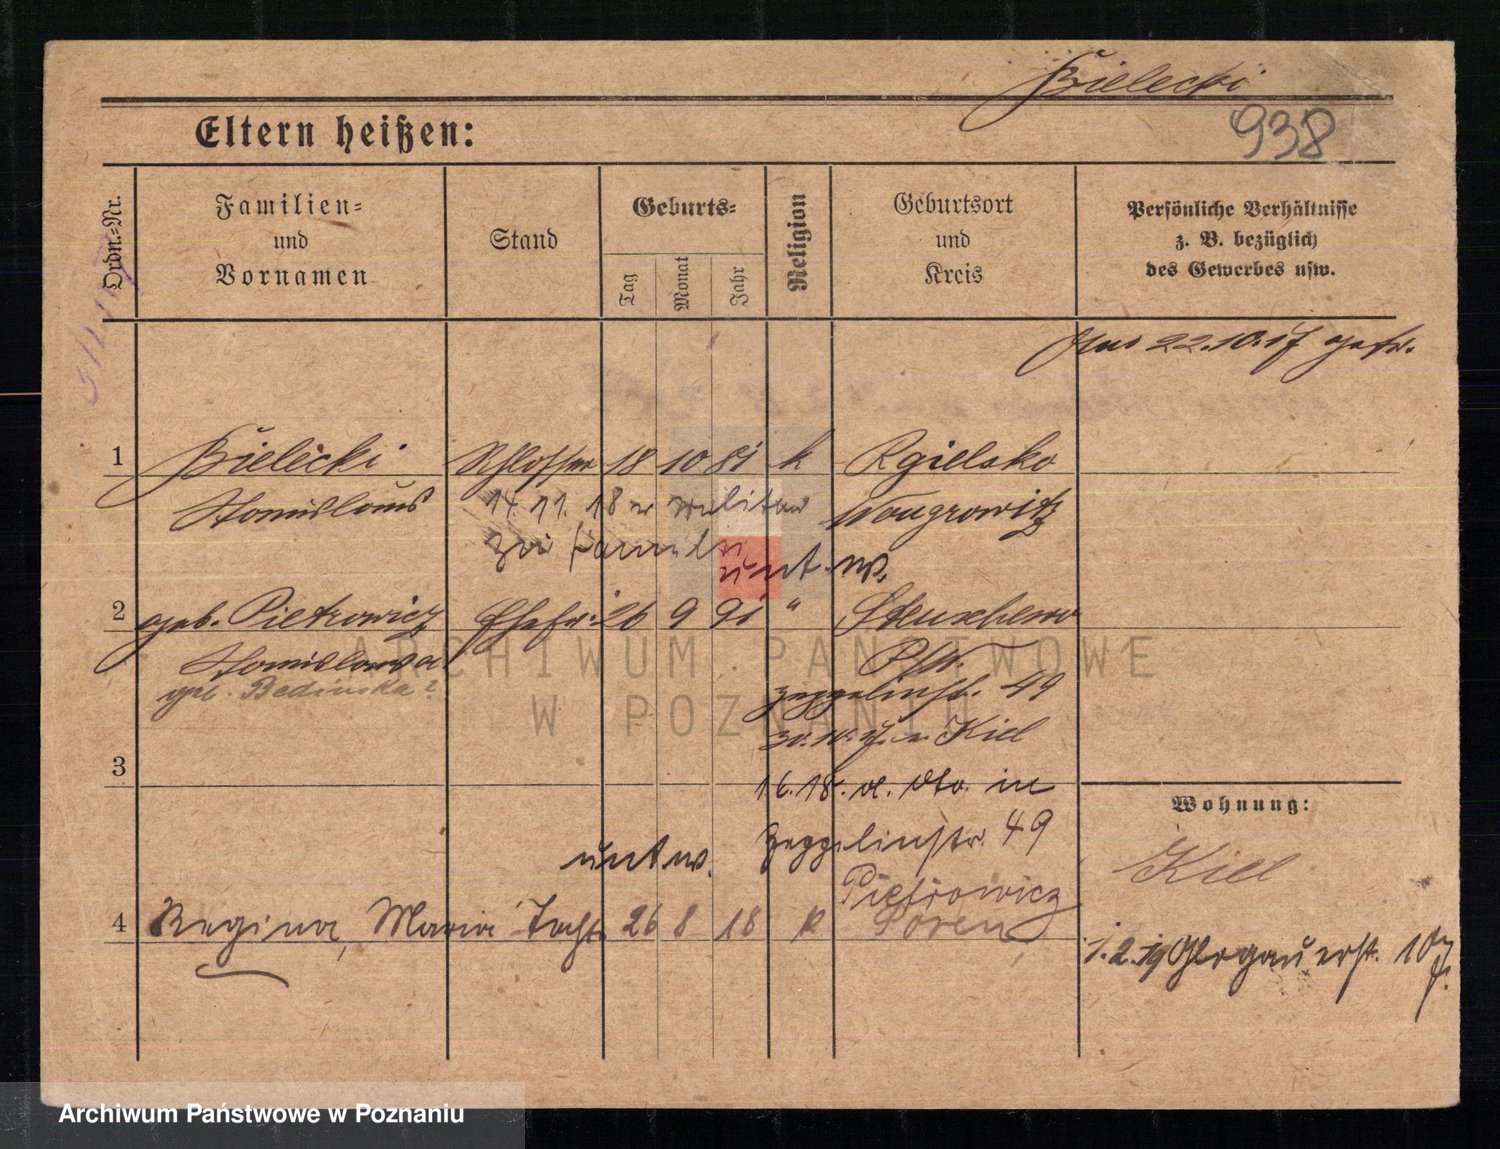 Bielecki
938
Eltern heißen:
Ordn.-Nr.
Familien-
und
Vornamen
Stand
Geburts-
Tag
Monat
Jahr
Religion
Geburtsort
und
Kreis
Persönliche Verhältnisse
z. B. bezüglich
des Gewerbes usw.
22.10.17
1 Bielecki Schlosser 18 10 81 k Rgielsko
Stanislaus Wongrowitz
14.11.18 v Militär
zur Familie
unt. w.
2 geb. Pietrowicz Ehefr. 26 9 91 "
Stanislawa
geb. Bedinska?
Zeppelinstr. 49
Kiel
3
16.18. in
Wohnung:
Zeppelinstr. 49
unt w.
Kiel
Pietrowicz
4 Regina, Maria Tocht. 26 8 18 k Posen
1.2.19 Glogauerst. 107
ARCHIWUM PAŃSTWOWE
W POZNANIU
Archiwum Państwowe w Poznaniu